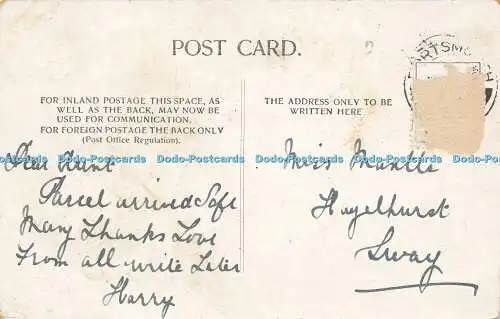 POST CARD.
PORTSMOUTH
FOR INLAND POSTAGE THIS SPACE, AS
WELL AS THE BACK, MAY NOW BE
USED FOR COMMUNICATION.
FOR FOREIGN POSTAGE THE BACK ONLY
(Post Office Regulation).
THE ADDRESS ONLY TO BE
WRITTEN HERE
Dodo-Postcards Dodo-Postcards Dodo-Postcards Dodo-Postcards Dodo-Postcards
Dear Aunt
Parcel arrived Safe
Many Thanks Love
From all write Later
Harry
Miss Mantle
Hazelhurst
Sway